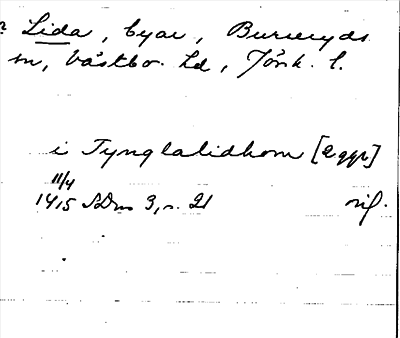 Lida, byar, Burseryds
sn, Västbo hd, Jönk. l.
i Tynglalidhom [2 ggr]
11/4
1415 SDns 3, s. 21 rif.